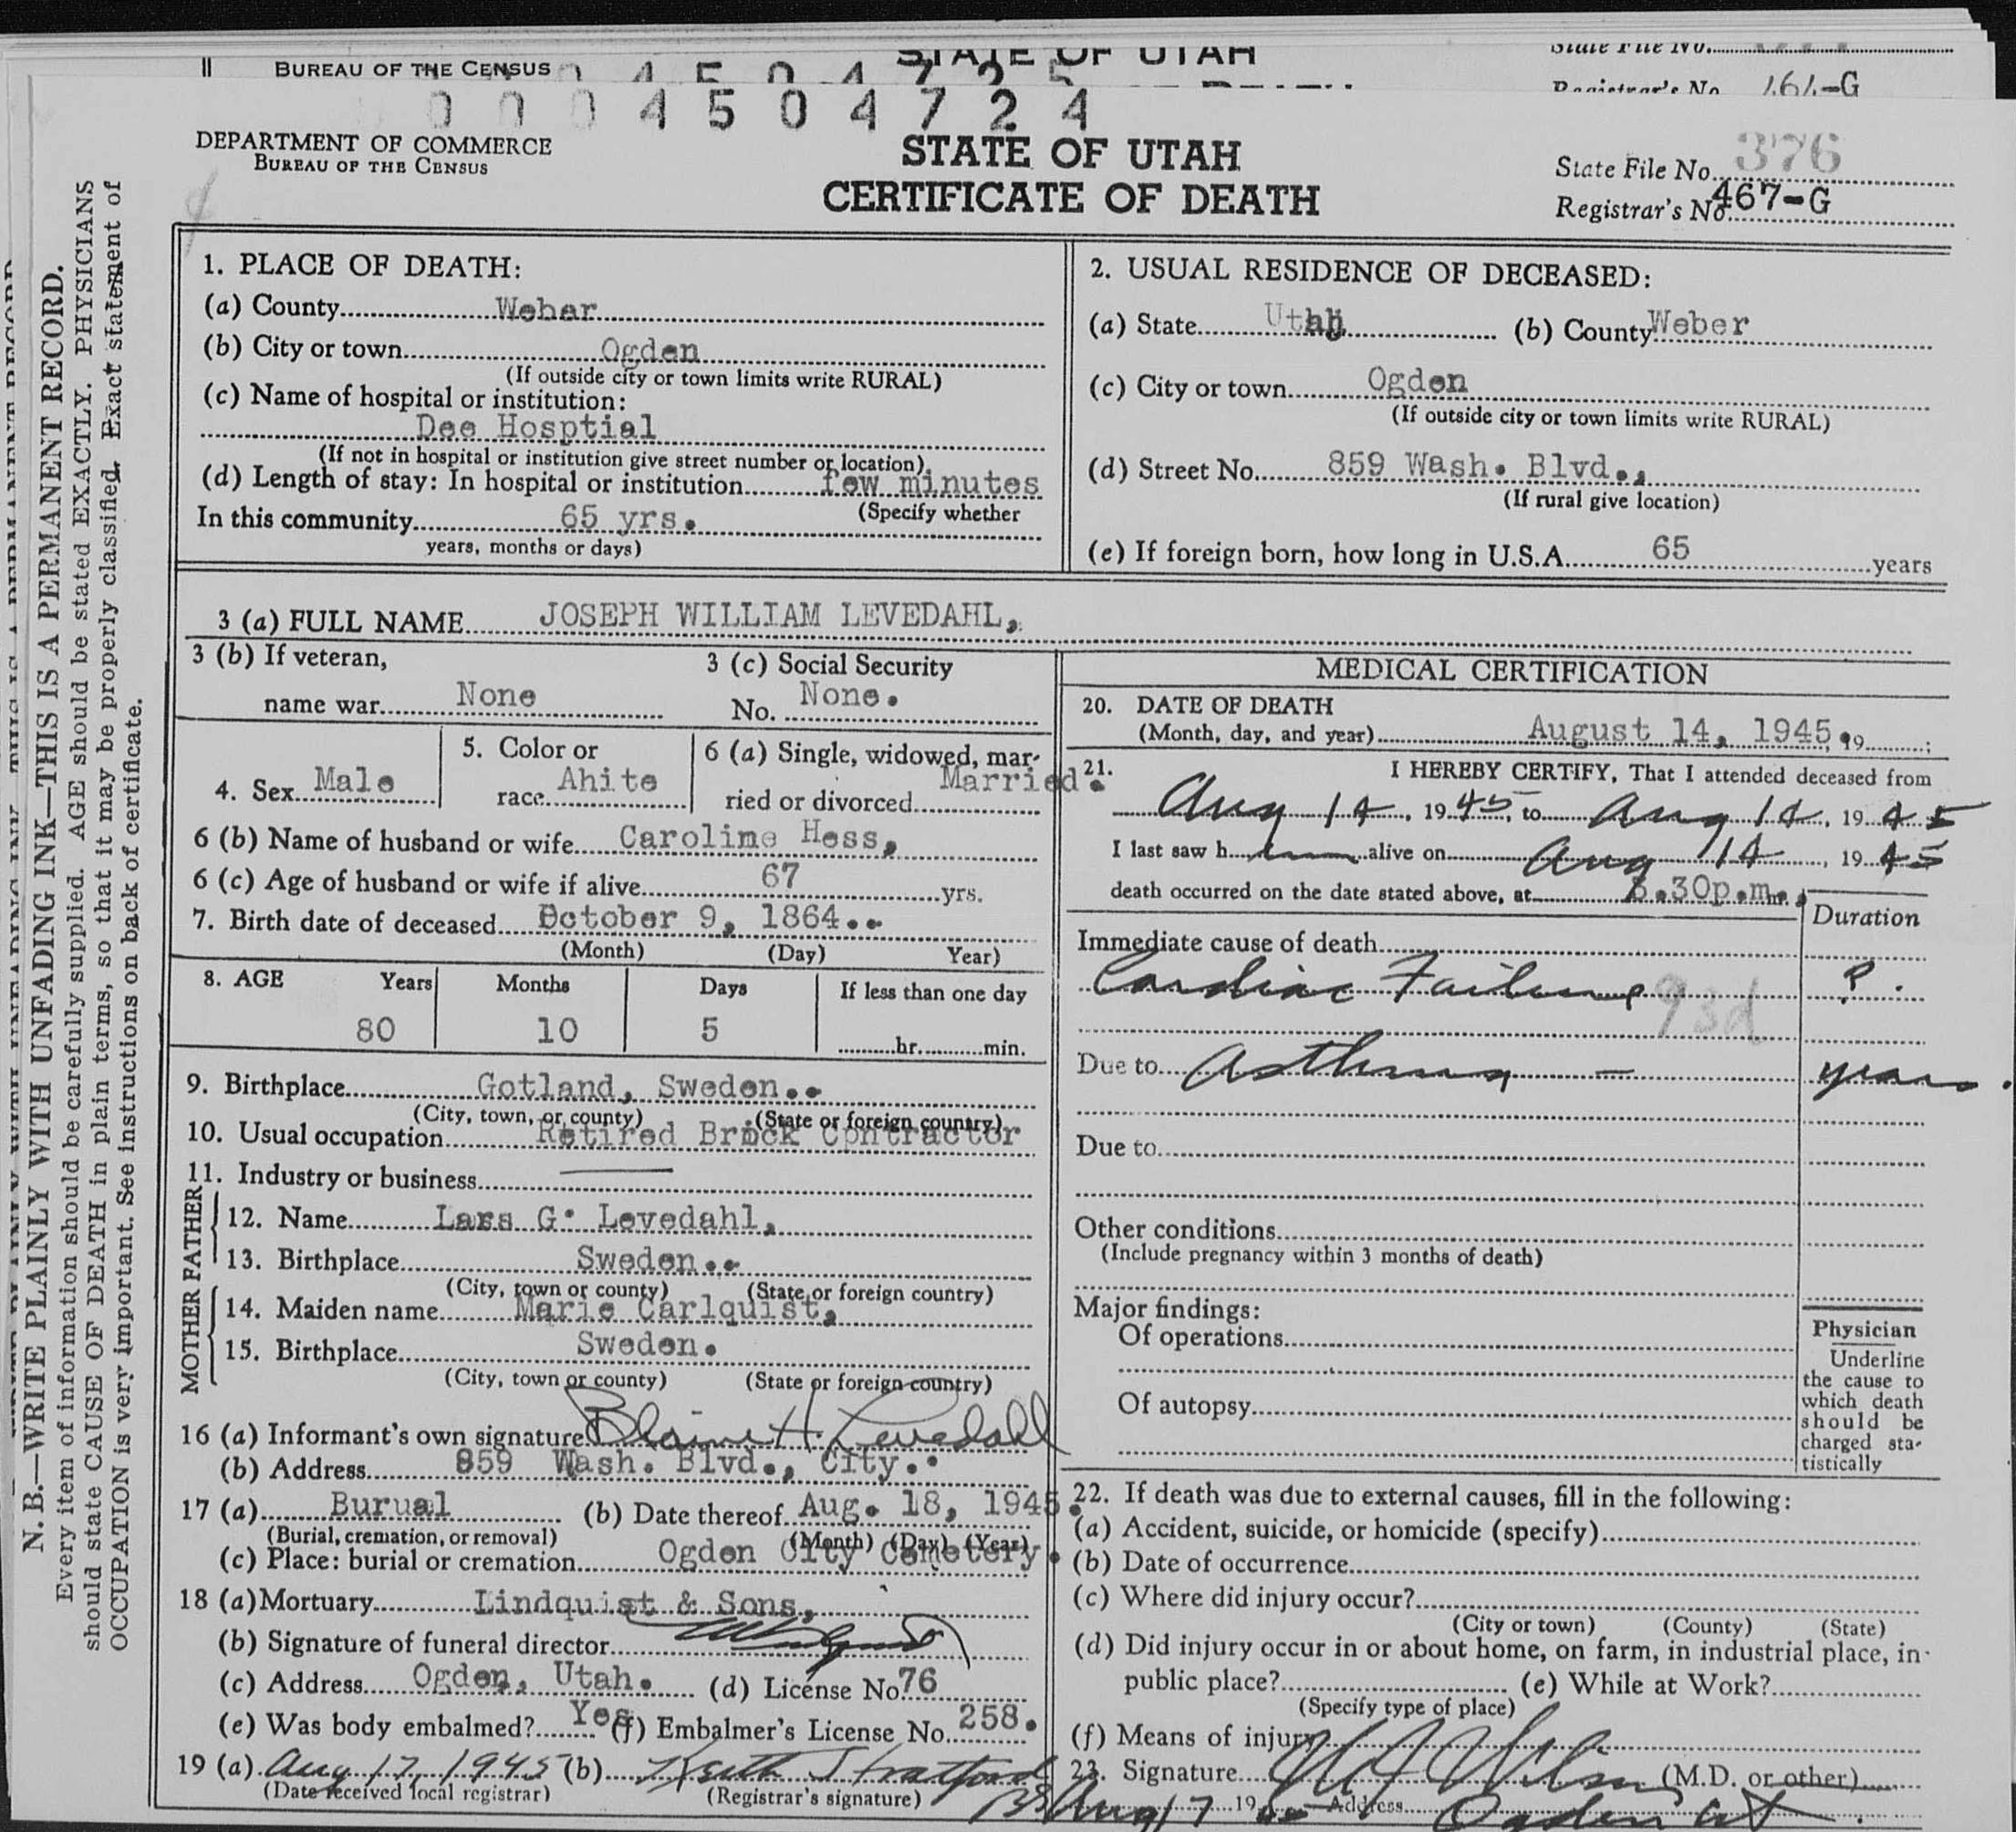 BUREAU OF THE CENSUS
STATE OF UTAH
State File No.
Registrar's No. 464-G
0 0 0 4 5 0 4 7 2 4
DEPARTMENT OF COMMERCE
BUREAU OF THE CENSUS
STATE OF UTAH
CERTIFICATE OF DEATH
State File No. 376
Registrar's No. 467-G
N. B.—WRITE PLAINLY WITH UNFADING INK—THIS IS A PERMANENT RECORD.
Every item of information should be carefully supplied. AGE should be stated EXACTLY. PHYSICIANS
should state CAUSE OF DEATH in plain terms, so that it may be properly classified. Exact statement of
OCCUPATION is very important. See instructions on back of certificate.
1. PLACE OF DEATH:
(a) County Weber
(b) City or town Ogden
(If outside city or town limits write RURAL)
(c) Name of hospital or institution:
Dee Hosptial
(If not in hospital or institution give street number or location)
(d) Length of stay: In hospital or institution few minutes
(Specify whether
In this community 65 yrs.
years, months or days)
2. USUAL RESIDENCE OF DECEASED:
(a) State Utah (b) County Weber
(c) City or town Ogden
(If outside city or town limits write RURAL)
(d) Street No. 859 Wash. Blvd.,
(If rural give location)
(e) If foreign born, how long in U.S.A. 65 years
3 (a) FULL NAME JOSEPH WILLIAM LEVEDAHL,
3 (b) If veteran,
name war None
3 (c) Social Security
No. None.
4. Sex Male
5. Color or
race Ahite
6 (a) Single, widowed, mar-
ried or divorced Married.
6 (b) Name of husband or wife Caroline Hess,
6 (c) Age of husband or wife if alive 67 yrs.
7. Birth date of deceased October 9, 1864..
(Month) (Day) Year)
8. AGE Years Months Days If less than one day
80 10 5 hr. min.
9. Birthplace Gotland, Sweden..
(City, town, or county) (State or foreign country)
10. Usual occupation Retired Brick Contractor
11. Industry or business
FATHER
12. Name Lars G. Levedahl,
13. Birthplace Sweden..
(City, town or county) (State or foreign country)
MOTHER
14. Maiden name Marie Carlquist,
15. Birthplace Sweden.
(City, town or county) (State or foreign country)
16 (a) Informant's own signature Blaine H. Levedahl
(b) Address 859 Wash. Blvd., City..
17 (a) Burual (b) Date thereof Aug. 18, 1945.
(Burial, cremation, or removal) (Month) (Day) (Year)
(c) Place: burial or cremation Ogden City Cemetery.
18 (a) Mortuary Lindquist & Sons,
(b) Signature of funeral director
(c) Address Ogden, Utah. (d) License No. 76
(e) Was body embalmed? Yes (f) Embalmer's License No. 258.
19 (a) Aug 17, 1945 (b) Keith Stratford
(Date received local registrar) (Registrar's signature)
MEDICAL CERTIFICATION
20. DATE OF DEATH
(Month, day, and year) August 14, 1945. 19 ;
21. I HEREBY CERTIFY, That I attended deceased from
Aug 14, 1945, to Aug 14, 1945
I last saw him alive on Aug 14, 1945
death occurred on the date stated above, at 3.30p.m.
Duration
Immediate cause of death
Cardiac Failure 93d ? .
Due to Asthma — years.
Due to
Other conditions
(Include pregnancy within 3 months of death)
Major findings:
Of operations
Of autopsy
Physician
Underline
the cause to
which death
should be
charged sta-
tistically
22. If death was due to external causes, fill in the following:
(a) Accident, suicide, or homicide (specify)
(b) Date of occurrence
(c) Where did injury occur?
(City or town) (County) (State)
(d) Did injury occur in or about home, on farm, in industrial place, in
public place? (e) While at Work?
(Specify type of place)
(f) Means of injury
23. Signature (M.D. or other)
Aug 17 19 Address Ogden Ut.